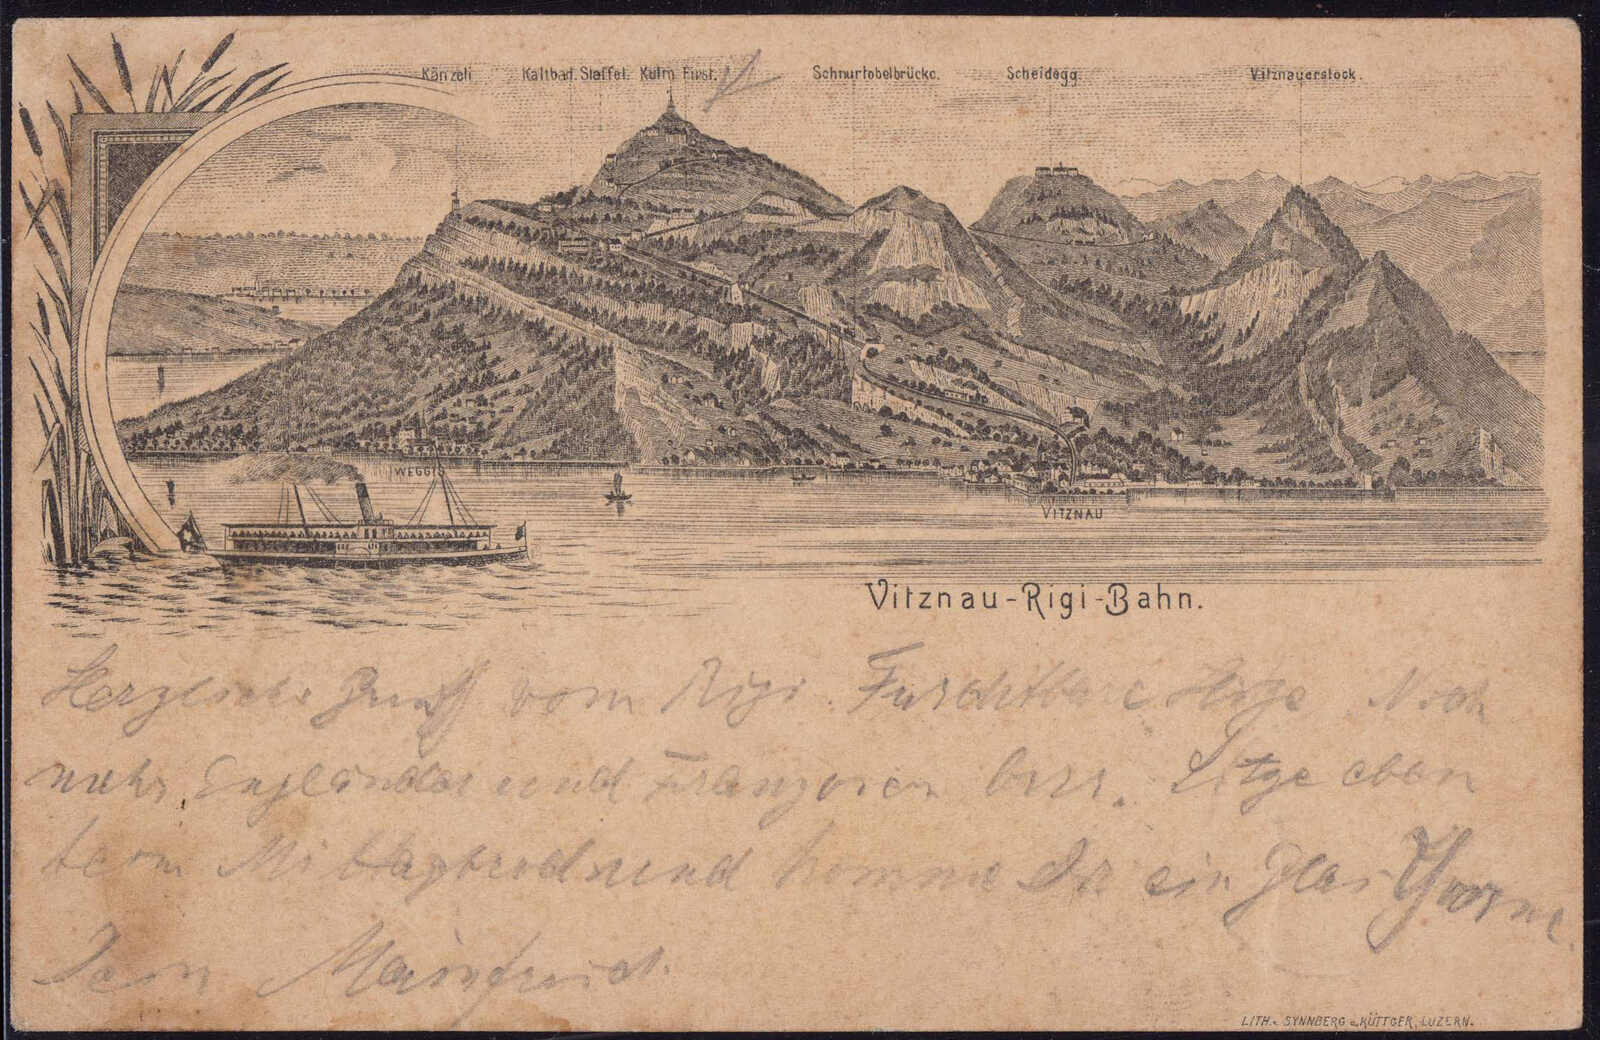 Känzeli Kaltbad. Staffel. Kulm First. Schnurtobelbrücke. Scheidegg. Vitznauerstock.
WEGGIS
VITZNAU
Vitznau-Rigi-Bahn.
Herzliche Gruß vom Rigi. Furchtbare Hitze Noch
mehr Engländer und Franzosen hier. Sitze eben
beim Mittagbrod und komme Dir ein Glas
Dein
LITH. SYNNBERG & RÜTTGER, LUZERN.